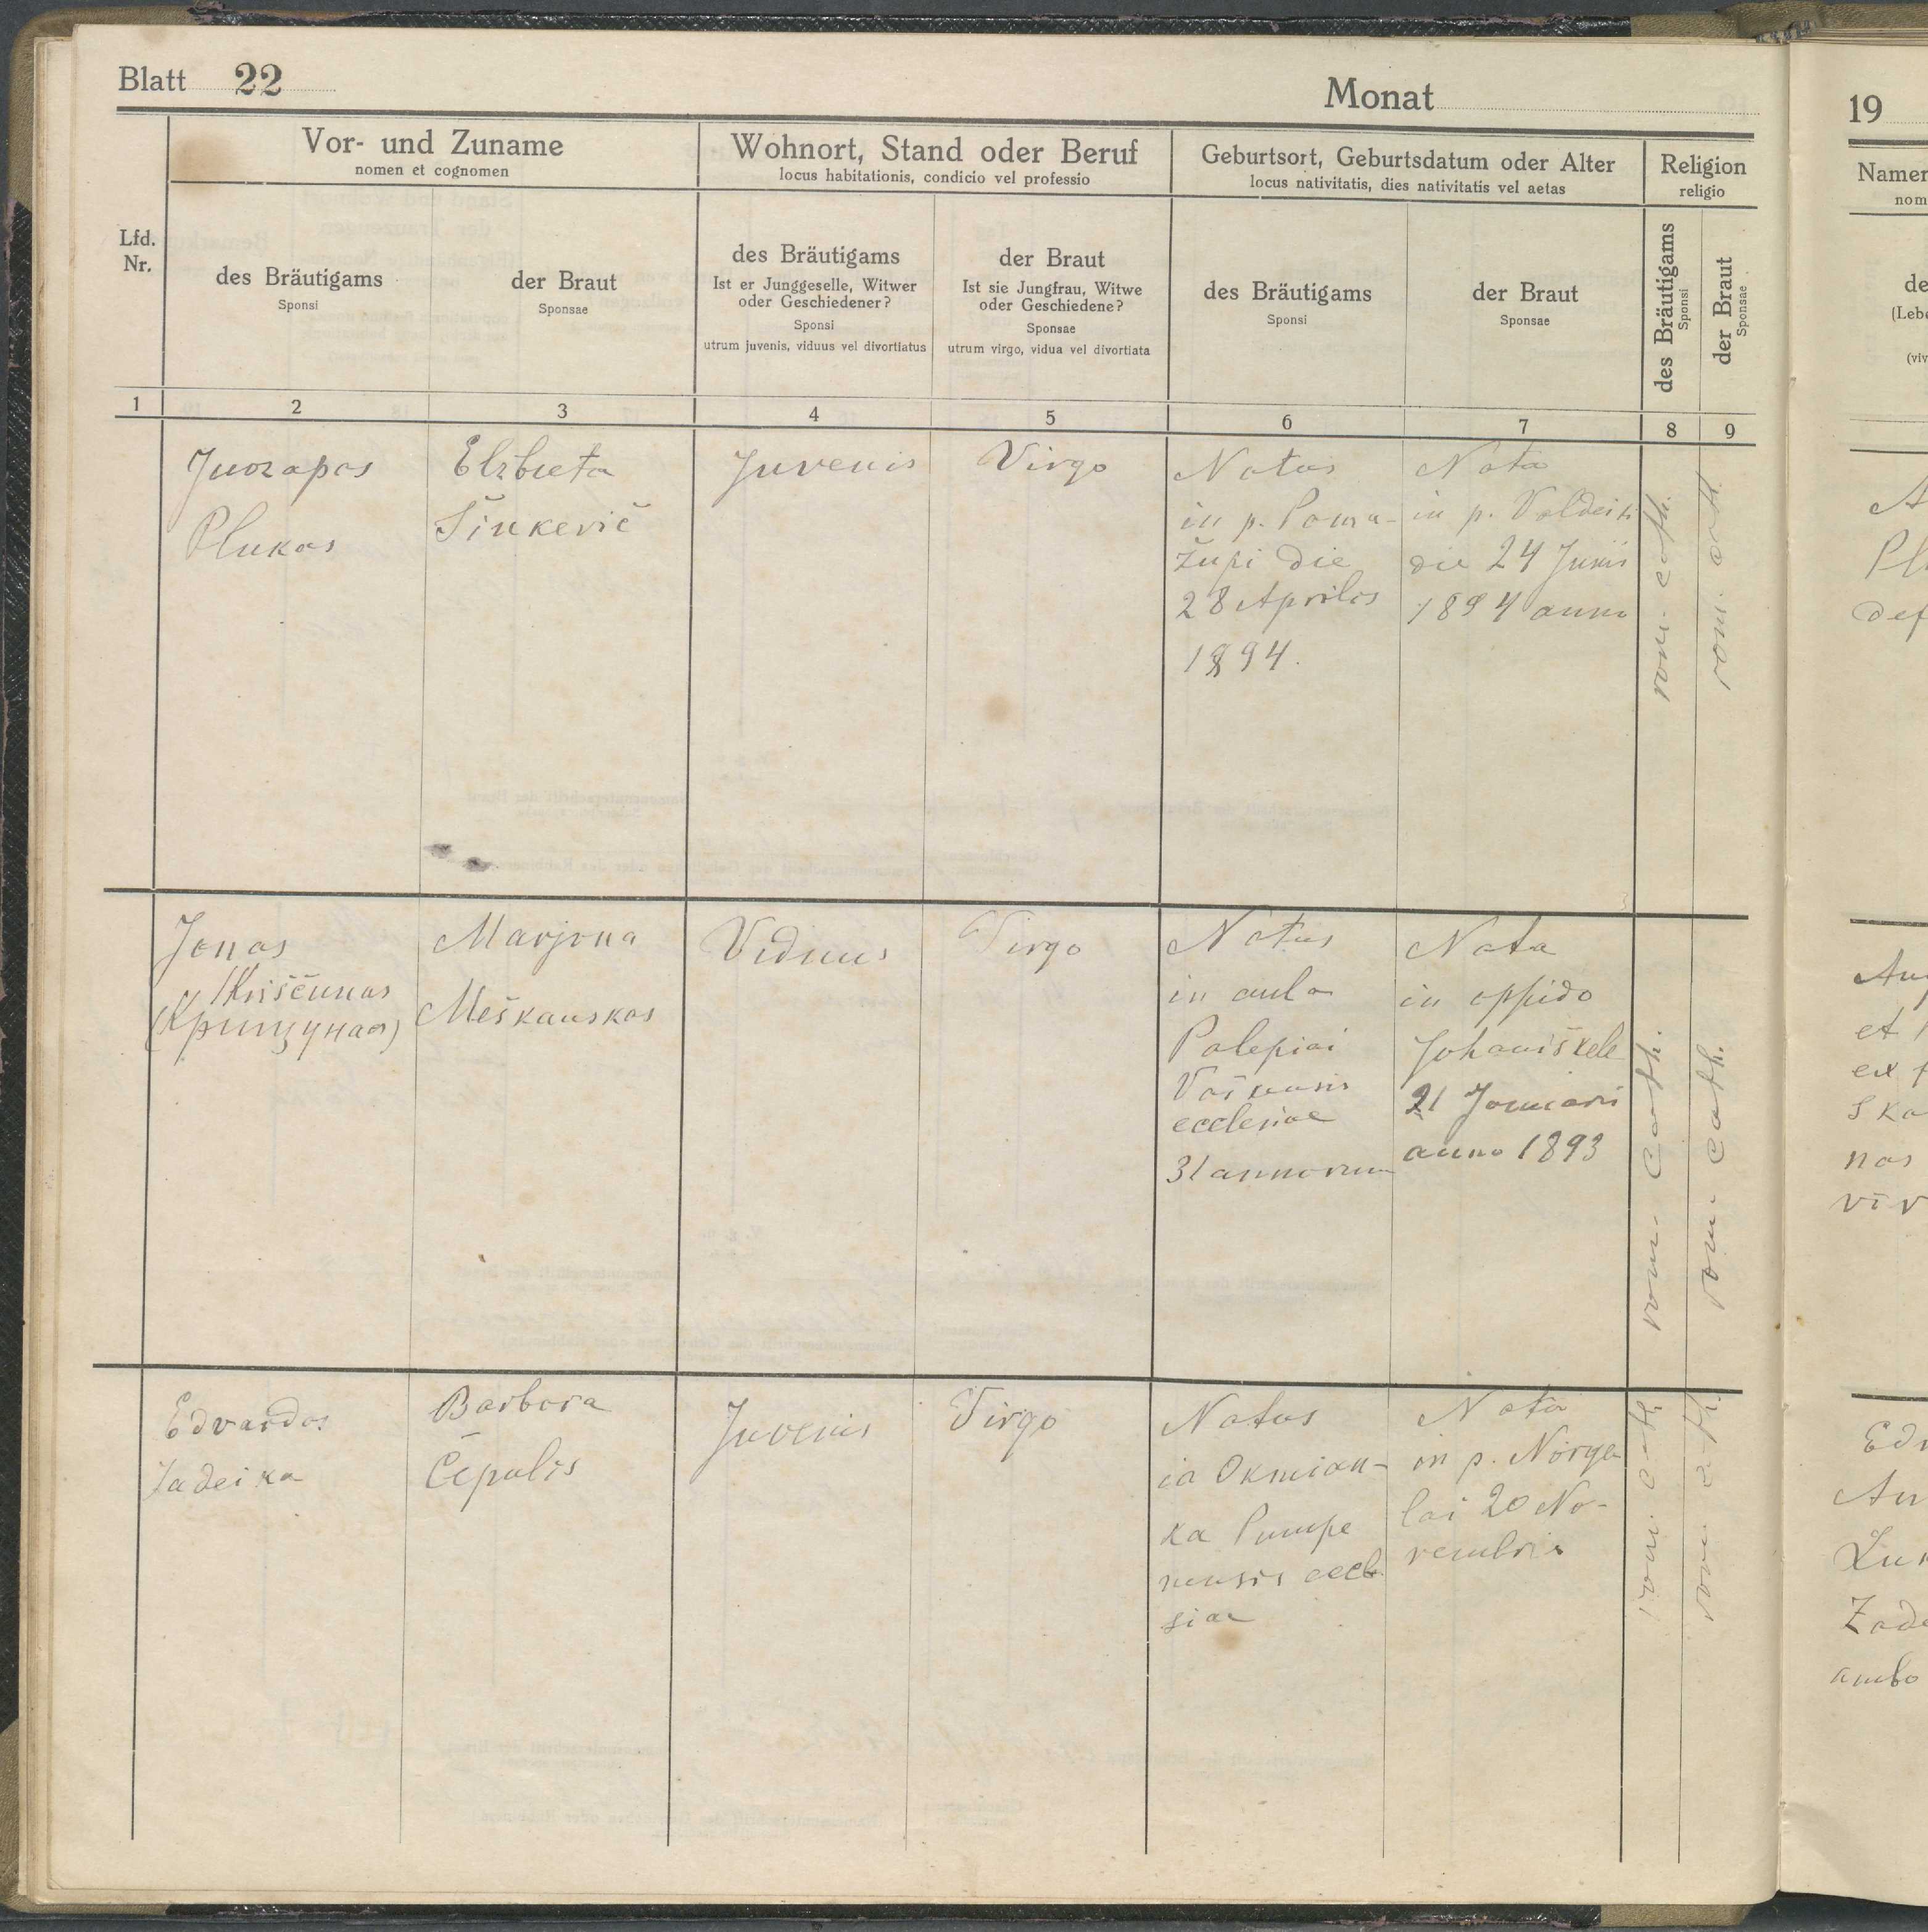 Blatt 22
Monat
19
Vor- und Zuname
nomen et cognomen
Wohnort, Stand oder Beruf
locus habitationis, condicio vel professio
Geburtsort, Geburtsdatum oder Alter
locus nativitatis, dies nativitatis vel aetas
Religion
religio
Namen
nom
Lfd.
Nr.
des Bräutigams
Sponsi
der Braut
Sponsae
des Bräutigams
Ist er Junggeselle, Witwer
oder Geschiedener?
Sponsi
utrum juvenis, viduus vel divortiatus
der Braut
Ist sie Jungfrau, Witwe
oder Geschiedene?
Sponsae
utrum virgo, vidua vel divortiata
des Bräutigams
Sponsi
der Braut
Sponsae
des Bräutigams
Sponsi
der Braut
Sponsae
de
(Lebe
(viv
1 2 3 4 5 6 7 8 9
Juozapas
Plukas
Elzbieta
Šinkevič
Juvenis
Virgo
Natus
in p. Pama-
župi die
28 Aprilis
1894.
Nata
in p. Valdeik
die 24 Junii
1894 anno
rom. cath.
rom. cath.
A
Pl
def
Jonas
Kriščunas
(Крищунас)
Marjona
Meškauskas
Viduus
Virgo
Natus
in aula
Palepiai
Vaškensis
ecclesiae
31 annorum
Nata
in oppido
Johaniškele
21 Januarii
anno 1893
rom. Cath.
rom. Cath.
Au
et
ex p
ska
nas
viv
Edvardas
Zadeika
Barbora
Čepulis
Juvenis
Virgo
Natus
in Okmian-
ka Pumpe
nensis eccle
siae
Nata
in p. Norga
lai 20 No-
vembris
rom. cath.
rom. cath.
Edv
An
Zade
ambo